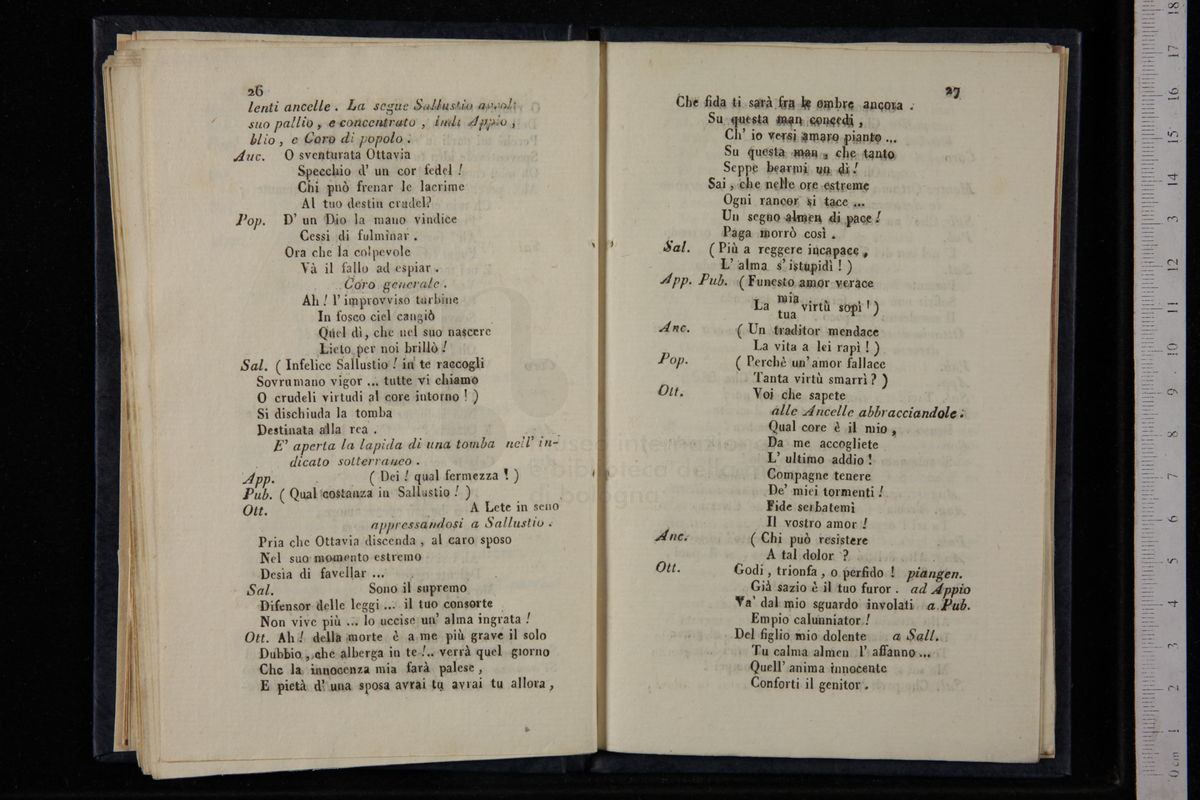 26
lenti ancelle . La segue Sallustio
suo pallio , e concentrato , indi Appio ,
blio , e Coro di popolo .
Anc. O sventurata Ottavia
Specchio d' un cor fedel !
Chi può frenar le lacrime
Al tuo destin crudel?
Pop. D' un Dio la mano vindice
Cessi di fulminar .
Ora che la colpevole
Và il fallo ad espiar .
Coro generale .
Ah ! l' improvviso turbine
In fosco ciel cangiò
Quel dì, che nel suo nascere
Lieto per noi brillò !
Sal. ( Infelice Sallustio ! in te raccogli
Sovrumano vigor ... tutte vi chiamo
O crudeli virtudi al core intorno ! )
Si dischiuda la tomba
Destinata alla rea .
E' aperta la lapida di una tomba nell' in-
dicato sotterraneo .
App. ( Dei ! qual fermezza ! )
Pub. ( Qual costanza in Sallustio ! )
Ott. A Lete in seno
appressandosi a Sallustio .
Pria che Ottavia discenda , al caro sposo
Nel suo momento estremo
Desia di favellar ...
Sal. Sono il supremo
Difensor delle leggi ... il tuo consorte
Non vive più ... lo uccise un' alma ingrata !
Ott. Ah ! della morte è a me più grave il solo
Dubbio , che alberga in te !.. verrà quel giorno
Che la innocenza mia farà palese ,
E pietà d' una sposa avrai tu avrai tu allora ,
27
Che fida ti sarà fra le ombre ancora .
Su questa man concedi ,
Ch' io versi amaro pianto ...
Su questa man , che tanto
Seppe bearmi un dì !
Sai , che nelle ore estreme
Ogni rancor si tace ...
Un segno almen di pace !
Paga morrò così .
Sal. ( Più a reggere incapace ,
L' alma s' istupidì ! )
App. Pub. ( Funesto amor verace
La mia virtù sopì ! )
tua
Anc. ( Un traditor mendace
La vita a lei rapì ! )
Pop. ( Perchè un' amor fallace
Tanta virtù smarrì ? )
Ott. Voi che sapete
alle Ancelle abbracciandole .
Qual core è il mio ,
Da me accogliete
L' ultimo addio !
Compagne tenere
De' miei tormenti !
Fide serbatemi
Il vostro amor !
Anc. ( Chi può resistere
A tal dolor ?
Ott. Godi , trionfa , o perfido ! piangen.
Già sazio è il tuo furor . ad Appio
Va' dal mio sguardo involati a Pub.
Empio calunniator !
Del figlio mio dolente a Sall.
Tu calma almen l' affanno ...
Quell' anima innocente
Conforti il genitor .
museo internazionale
e biblioteca della
di bologna